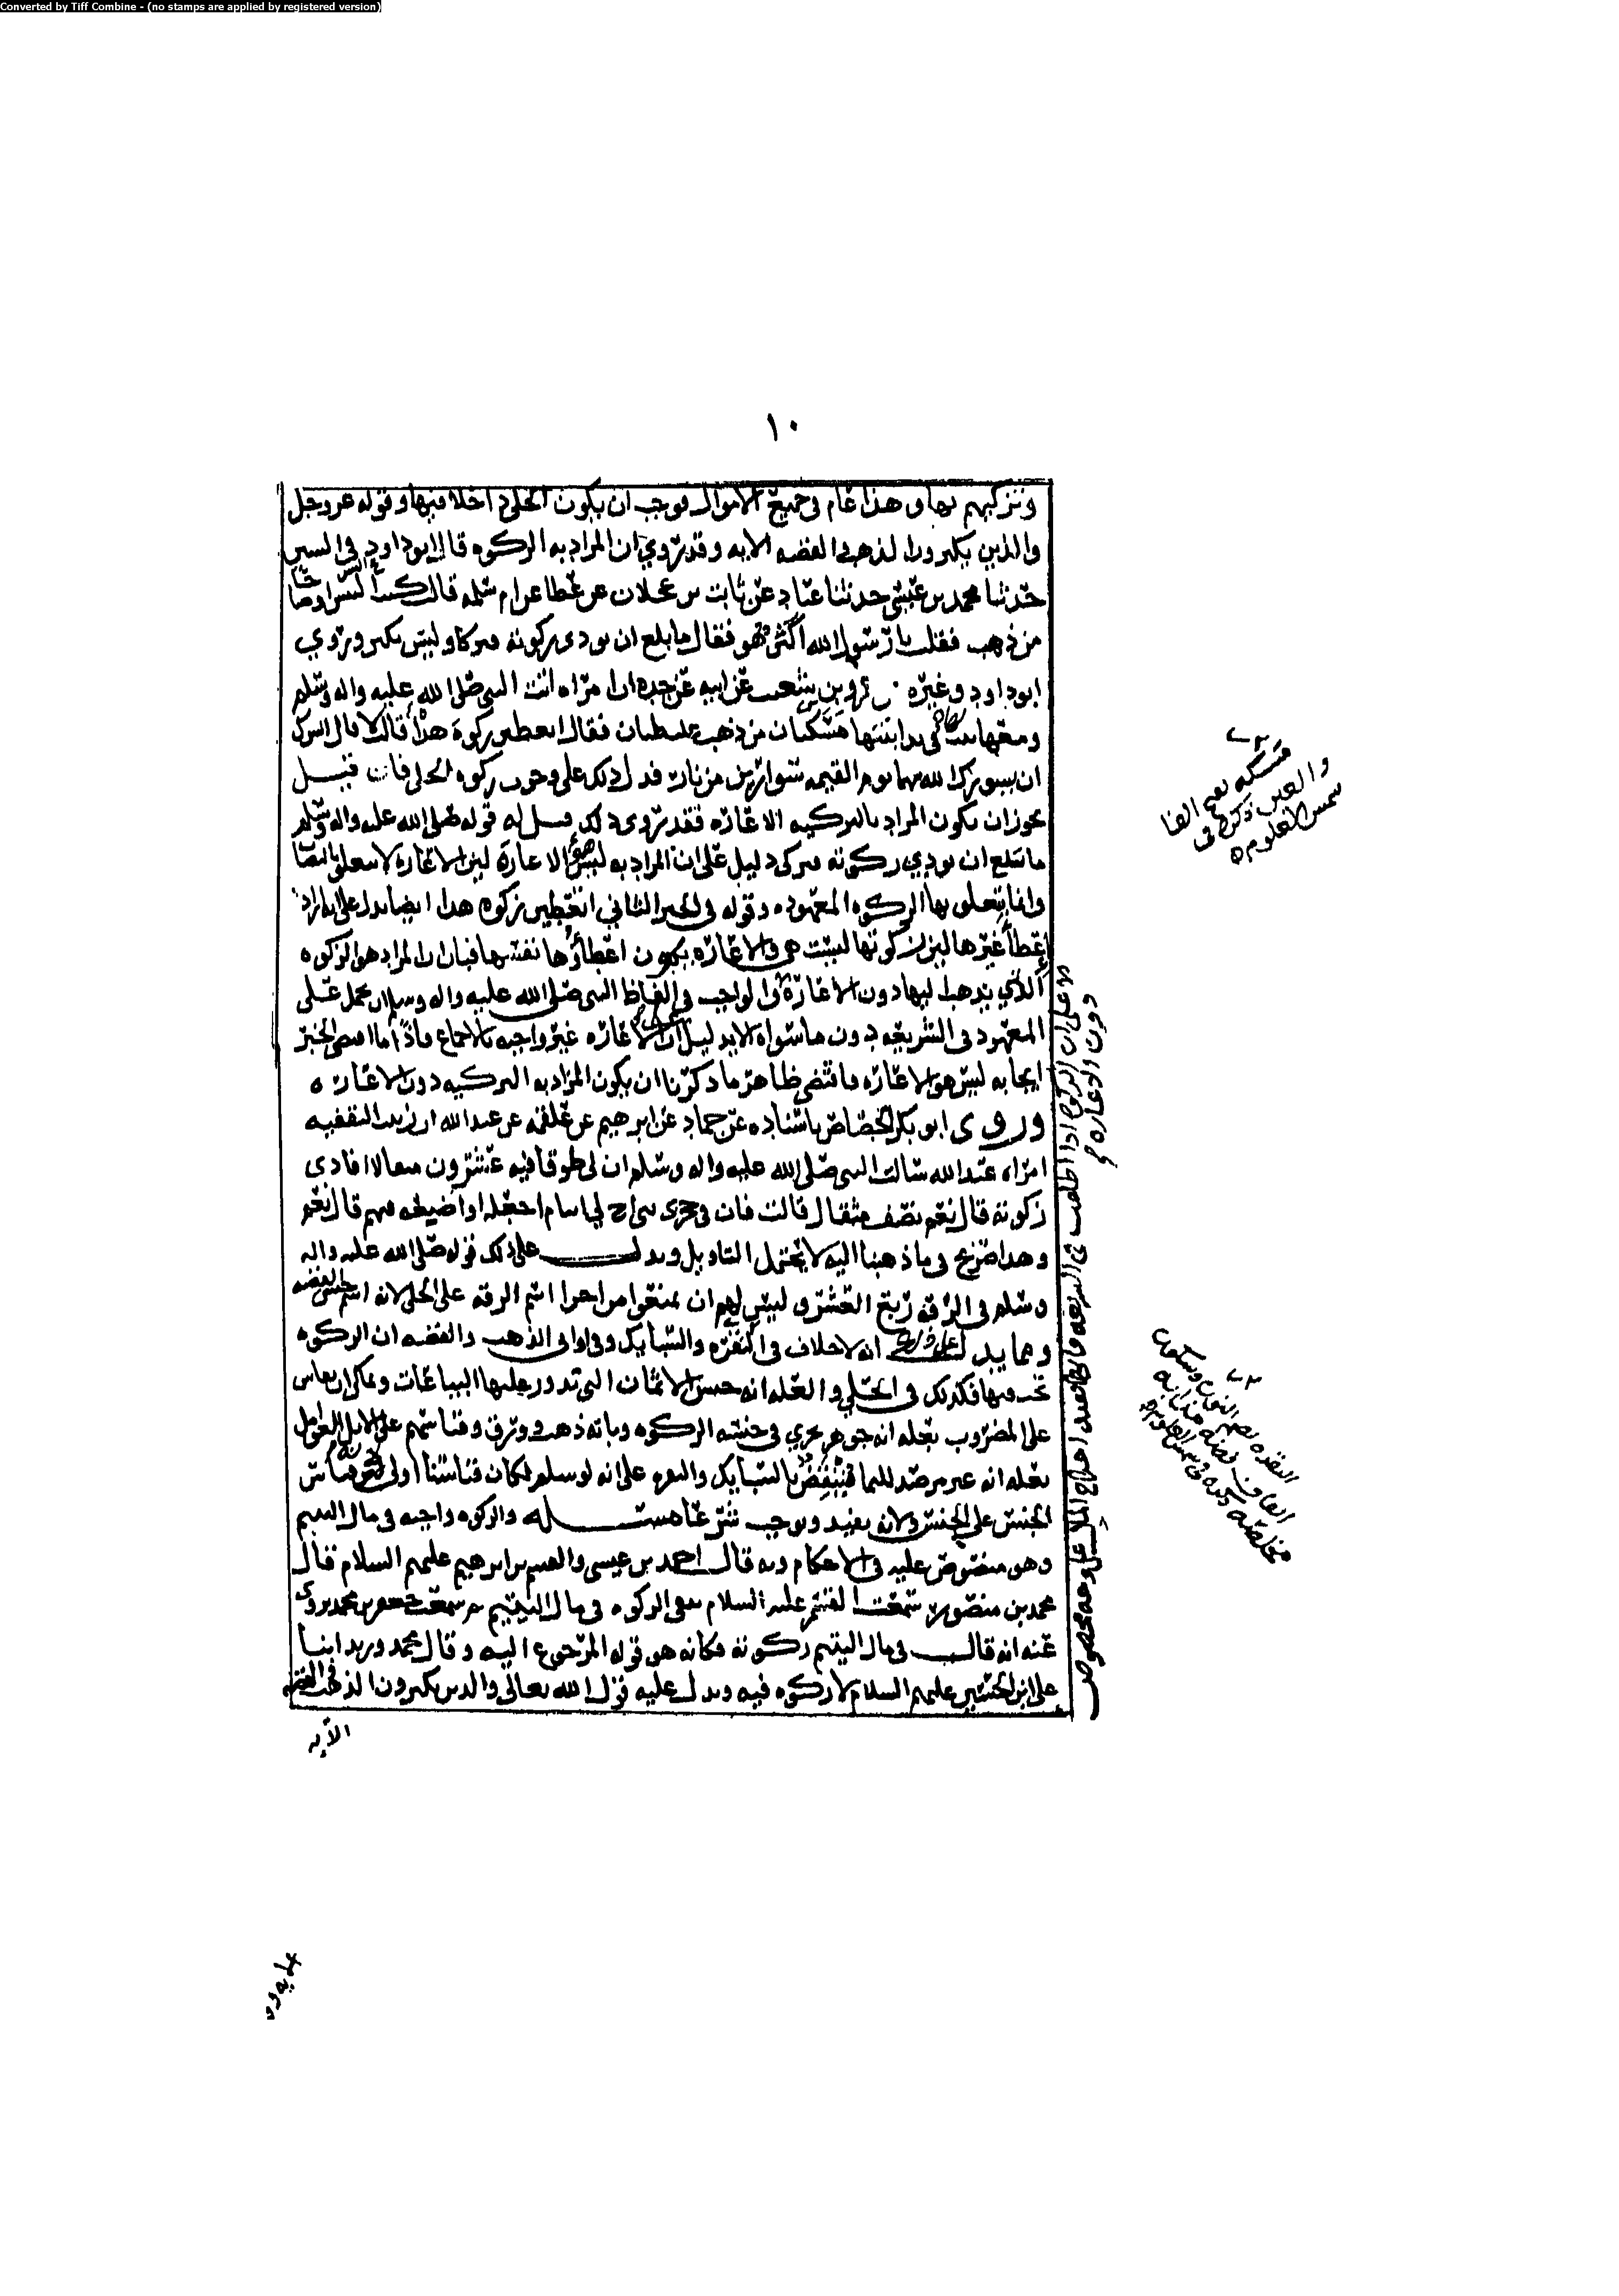 Converted by Tiff Combine - (no stamps are applied by registered version)
١٠
وتزكيهم بها وهذا عام في جميع الاموال فوجب ان يكون الحلي داخلا فيها وقوله عز وجل
والذين يكنزون الذهب والفضه الايه وقد روي ان المراد به الزكوه قال ابو داود في السنن
حدثنا محمد بن عيسى حدثنا عتاب عن ثابت بن عجلان عن عطا عن ام سلمه قالت كنت البس اوضاحا
من ذهب فقلت يا رسول الله اكنز هو فقال ما بلغ ان تودى زكوته فزكا وليس بكنز وروي
ابو داود وغيره عن عمرو بن شعيب عن ابيه عن جده ان امراه اتت النبي صلى الله عليه واله وسلم
ومعها بنت لها في يد ابنتها مسكتان من ذهب غليظتان فقال اتعطين زكوة هذا قالت لا قال ايسرك
ان يسورك الله بهما يوم القيمه سوارين من نار فدل ذلك على وجوب زكوه الحلي فان قيل
يجوز ان يكون المراد بالتزكيه الاعاره فقد روى ذلك قيل له قوله صلى الله عليه واله وسلم
ما بلغ ان يودي زكوته فزكى دليل على ان المراد به ليس هو الاعارة لان الاعارة لا تتعلق بالنصاب
وانما يتعلق بها الزكوه المعهوده وقوله في الخبر الثاني اتعطين زكوه هذا ايضا يدل على انه اراد
اعطا غيرها لان زكوتها ليست هي والاعاره يكون اعطاؤها نفسها فبان ان المراد هو الزكوه
الذي يذهب اليها دون الاعارة والواجب في الفاظ النبي صلى الله عليه واله وسلم ان يحمل على
المعهود في الشريعه دون ما سواه الا بدليل الاعاره غير واجبه بالاجماع فاذا ما اقتضى الخبر
ايجابه ليس هو الاعاره فاقتضى ظاهر ما ذكرنا ان يكون المراد به التزكيه دون الاعاره
وروى ابو بكر الجصاص باسناده عن حماد عن ابرهيم عن علقمه عن عبد الله ان زينب الثقفيه
امراه عبد الله سالت النبي صلى الله عليه واله وسلم ان لي طوقا فيه عشرون مثقالا افادى
زكوته قال نعم نصف مثقال قالت فان في حجري بني اخ لي ايتام افاجعله او اضعه فيهم قال نعم
وهذا صريح في ما ذهبنا اليه لا يحتمل التاويل ويدل على ذلك قوله صلى الله عليه واله
وسلم في الرقه ربع العشر وليس لهم ان يمنعوا من اجرا اسم الرقه على الحلي لانه اسم لجنس الفضه
ومما يدل على ذلك انه لا خلاف في النقره والسبايك وفي اواني الذهب والفضه ان الزكوه
تجب فيها فكذلك في الحلي والعله انه جنس الاثمان التي تدور عليها البياعات ويمكن ان يقاس
على المضروب بعله انه جوهر يجري في جنسه الزكوه وبانه ذهب وورق وقياسهم على الابل العوامل
بعله انه غير مرصد للنما فينتقض بالسبايك والنقره على انه لو سلم لكان قياسنا اولى لانه قياس
الجنس على الجنس ولانه يفيد ويوجب شرعا مسئله والزكوه واجبه في مال اليتيم
وهو منصوص عليه في الاحكام وبه قال احمد بن عيسى والقسم بن ابرهيم عليهم السلام قال
محمد بن منصور سمعت القسم عليه السلام ينفي الزكوه في مال اليتيم ثم سمعت جعفر بن محمد يروي
عنه انه قال في مال اليتيم زكوته فكانه هو قوله المرجوع اليه وقال محمد وزيد ابنا
علي بن الحسين عليهم السلام لا زكوه فيه ويدل عليه قول الله تعالى والذين يكنزون الذهب والفضه
الآيه
مسكه بفتح الفا
والعين ذكره في
شمس العلوم
النقره بضم النون وسكون
القاف فضه مذابه
مخلصه ذكره في شمس العلوم
دون الاعاره